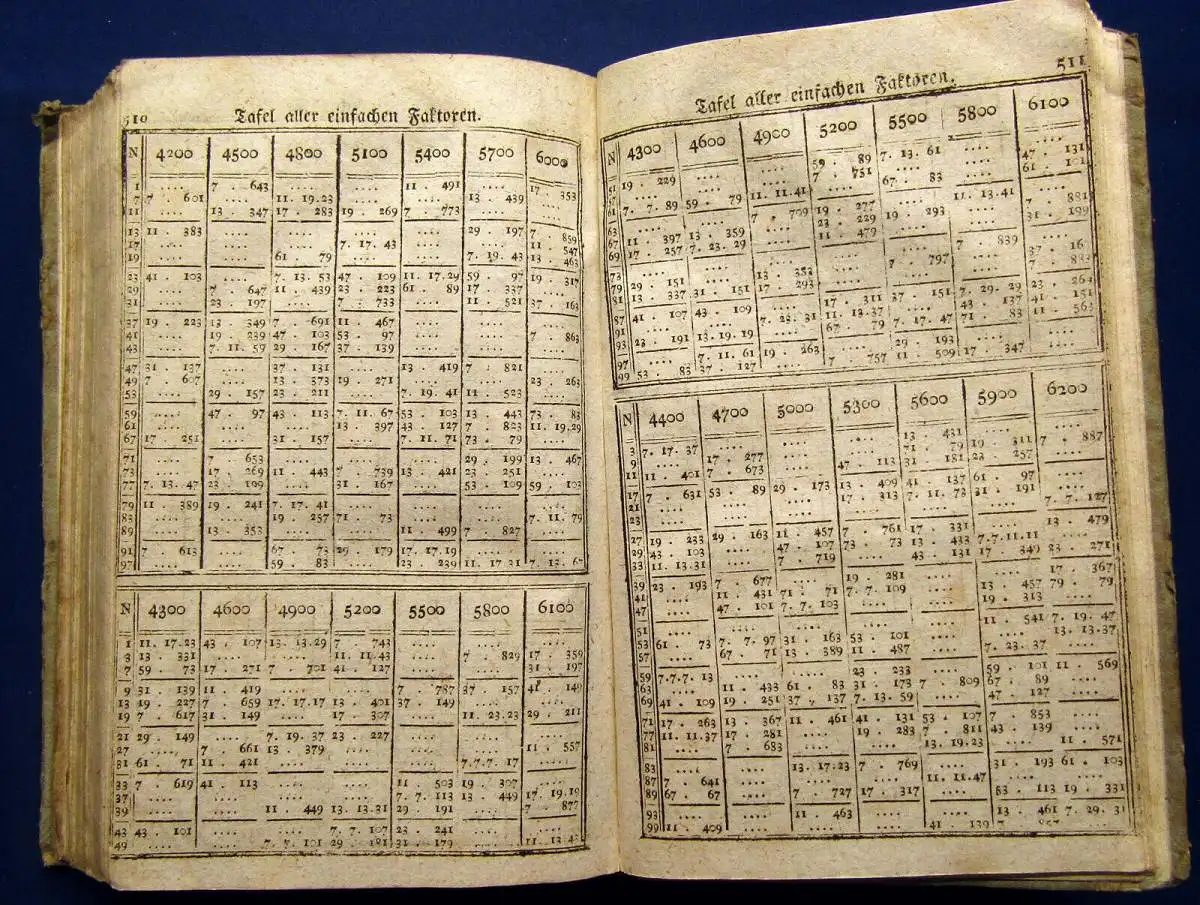 510
Tafel aller einfachen Faktoren.
N 4200 4500 4800 5100 5400 5700 6000
1 .... 7 . 643 .... .... 11 . 491 .... 17 . 353
7 7 . 601 .... 11. 19.23 .... .... 13 . 439 ....
11 .... 13 . 347 17 . 283 19 . 269 7 . 773 .... ....
13 11 . 383 .... .... .... .... 29 . 197 7 . 859
17 .... .... .... 7. 17. 43 .... .... 11 . 547
19 .... .... 61 . 79 .... .... 7. 19. 43 13 . 463
23 41 . 103 .... 7. 13. 53 47 . 109 11. 17.29 59 . 97 19 . 317
29 .... 7 . 647 11 . 439 23 . 223 61 . 89 17 . 337 ....
31 .... 23 . 197 .... 7 . 733 .... 11 . 521 37 . 163
37 19 . 223 13 . 349 7 . 691 11 . 467 .... .... ....
41 .... 19 . 239 47 . 103 53 . 97 .... .... 7 . 863
43 .... 7. 11. 59 29 . 167 37 . 139 .... .... ....
47 31 . 137 .... 37 . 131 .... 13 . 419 7 . 821 ....
49 7 . 607 .... 13 . 373 19 . 271 .... .... 23 . 263
53 .... 29 . 157 23 . 211 .... 7. 19. 41 11 . 523 ....
59 .... 47 . 97 43 . 113 7. 11. 67 53 . 103 13 . 443 73 . 83
61 .... .... .... 13 . 397 43 . 127 7 . 823 11. 19.29
67 17 . 251 .... 31 . 157 .... 7. 11. 71 73 . 79 ....
71 .... 7 . 653 .... .... .... 29 . 199 13 . 467
73 .... 17 . 269 11 . 443 7 . 739 13 . 421 23 . 251 ....
77 7. 13. 47 23 . 199 .... 31 . 167 .... 53 . 109 59 . 103
79 11 . 389 19 . 241 7. 17. 41 .... .... .... ....
83 .... .... 19 . 257 71 . 73 .... .... 7. 11. 79
89 .... 13 . 353 .... .... 11 . 499 7 . 827 ....
91 7 . 613 .... 67 . 73 29 . 179 17. 17.19 .... ....
97 .... .... 59 . 83 .... 23 . 239 11. 17.31 7. 13. 67
N 4300 4600 4900 5200 5500 5800 6100
1 11. 17.23 43 . 107 13. 13.29 7 . 743 .... .... ....
3 13 . 331 .... .... 11. 11.43 .... 7 . 829 17 . 359
7 59 . 73 17 . 271 7 . 701 41 . 127 .... .... 31 . 197
9 31 . 139 11 . 419 .... .... 7 . 787 37 . 157 41 . 149
13 19 . 227 7 . 659 17. 17.17 13 . 401 37 . 149 .... ....
19 7 . 617 31 . 149 .... 17 . 307 .... 11. 23.23 29 . 211
21 29 . 149 .... 7. 19. 37 23 . 227 .... .... ....
27 .... 7 . 661 13 . 379 .... .... .... 11 . 557
31 61 . 71 11 . 421 .... .... .... 7.7.7. 17 ....
33 7 . 619 41 . 113 .... .... 11 . 503 19 . 307 ....
37 .... .... .... .... 7. 7. 113 13 . 449 17. 19.19
39 .... .... 11 . 449 13. 13.31 29 . 191 .... 7 . 877
43 43 . 101 .... .... 7. 7. 107 23 . 241 .... ....
49 .... .... 7. 7. 101 29 . 181 31 . 179 .... 11. 13.43
511
Tafel aller einfachen Faktoren.
N 4300 4600 4900 5200 5500 5800 6100
51 19 . 229 .... .... 59 . 89 7. 13. 61 .... ....
57 .... .... .... 7 . 751 .... .... 47 . 131
61 7. 7. 89 59 . 79 11. 11.41 .... 67 . 83 .... 61 . 101
63 .... .... 7 . 709 19 . 277 .... 11. 13.41 ....
67 11 . 397 13 . 359 .... 23 . 229 19 . 293 .... 7 . 881
69 17 . 257 7. 23. 29 .... 11 . 479 .... .... 31 . 199
73 .... .... .... .... .... 7 . 839 ....
79 29 . 151 .... 13 . 383 .... 7 . 797 .... 37 . 16
81 13 . 337 31 . 151 17 . 293 .... .... .... 7 . 883
87 41 . 107 43 . 109 .... 17 . 311 37 . 151 7. 29. 29 23 . 269
91 .... .... 7. 23. 31 11. 13.37 .... 43 . 137 41 . 151
93 23 . 191 13. 19.19 .... 67 . 79 7. 17. 47 71 . 83 11 . 563
97 .... 7. 11. 61 19 . 263 .... 29 . 193 .... ....
99 53 . 83 37 . 127 .... 7 . 757 11 . 509 17 . 347 ....
N 4400 4700 5000 5300 5600 5900 6200
3 7. 17. 37 .... .... .... 13 . 431 .... ....
9 .... 17 . 277 .... .... 71 . 79 19 . 311 7 . 887
11 11 . 401 7 . 673 .... 47 . 113 31 . 181 23 . 257 ....
17 7 . 631 53 . 89 29 . 173 13 . 409 41 . 137 61 . 97 ....
21 .... .... .... 17 . 313 7. 11. 73 31 . 191 ....
23 .... .... .... .... .... .... 7. 7. 127
27 19 . 233 29 . 163 11 . 457 7 . 761 17 . 331 .... 13 . 479
29 43 . 103 .... 47 . 107 73 . 73 13 . 433 7.7.11.11 ....
33 11. 13.31 .... 7 . 719 .... 43 . 131 17 . 349 23 . 271
39 23 . 193 7 . 677 .... 19 . 281 .... .... 17 . 367
41 .... 11 . 431 71 . 71 7. 7. 109 .... 13 . 457 79 . 79
47 .... 47 . 101 7. 7. 103 .... .... 19 . 313 ....
51 .... .... .... .... .... 11 . 541 7. 19. 47
53 61 . 73 7. 7. 97 31 . 163 53 . 101 .... .... 13. 13.37
57 .... 67 . 71 13 . 389 11 . 487 .... 7. 23. 37 ....
59 7.7.7. 13 .... .... 23 . 233 .... 59 . 101 11 . 569
63 .... 11 . 433 61 . 83 31 . 173 7 . 809 67 . 89 ....
69 41 . 109 19 . 251 37 . 137 7. 13. 59 .... 47 . 127 ....
71 17 . 263 13 . 367 11 . 461 41 . 131 53 . 107 7 . 853 ....
77 11. 11.37 17 . 281 .... 19 . 283 7 . 811 43 . 139 ....
81 .... 7 . 683 .... .... 13. 19.23 .... 11 . 571
83 .... .... 13. 17.23 7 . 769 .... 31 . 193 61 . 103
87 7 . 641 .... .... .... 11. 11.47 .... ....
89 67 . 67 .... 7 . 727 17 . 317 .... 53 . 113 19 . 331
93 .... .... 11 . 463 .... .... 13 . 461 7. 29. 31
99 11 . 409 .... .... .... 41 . 139 7 . 857 ....